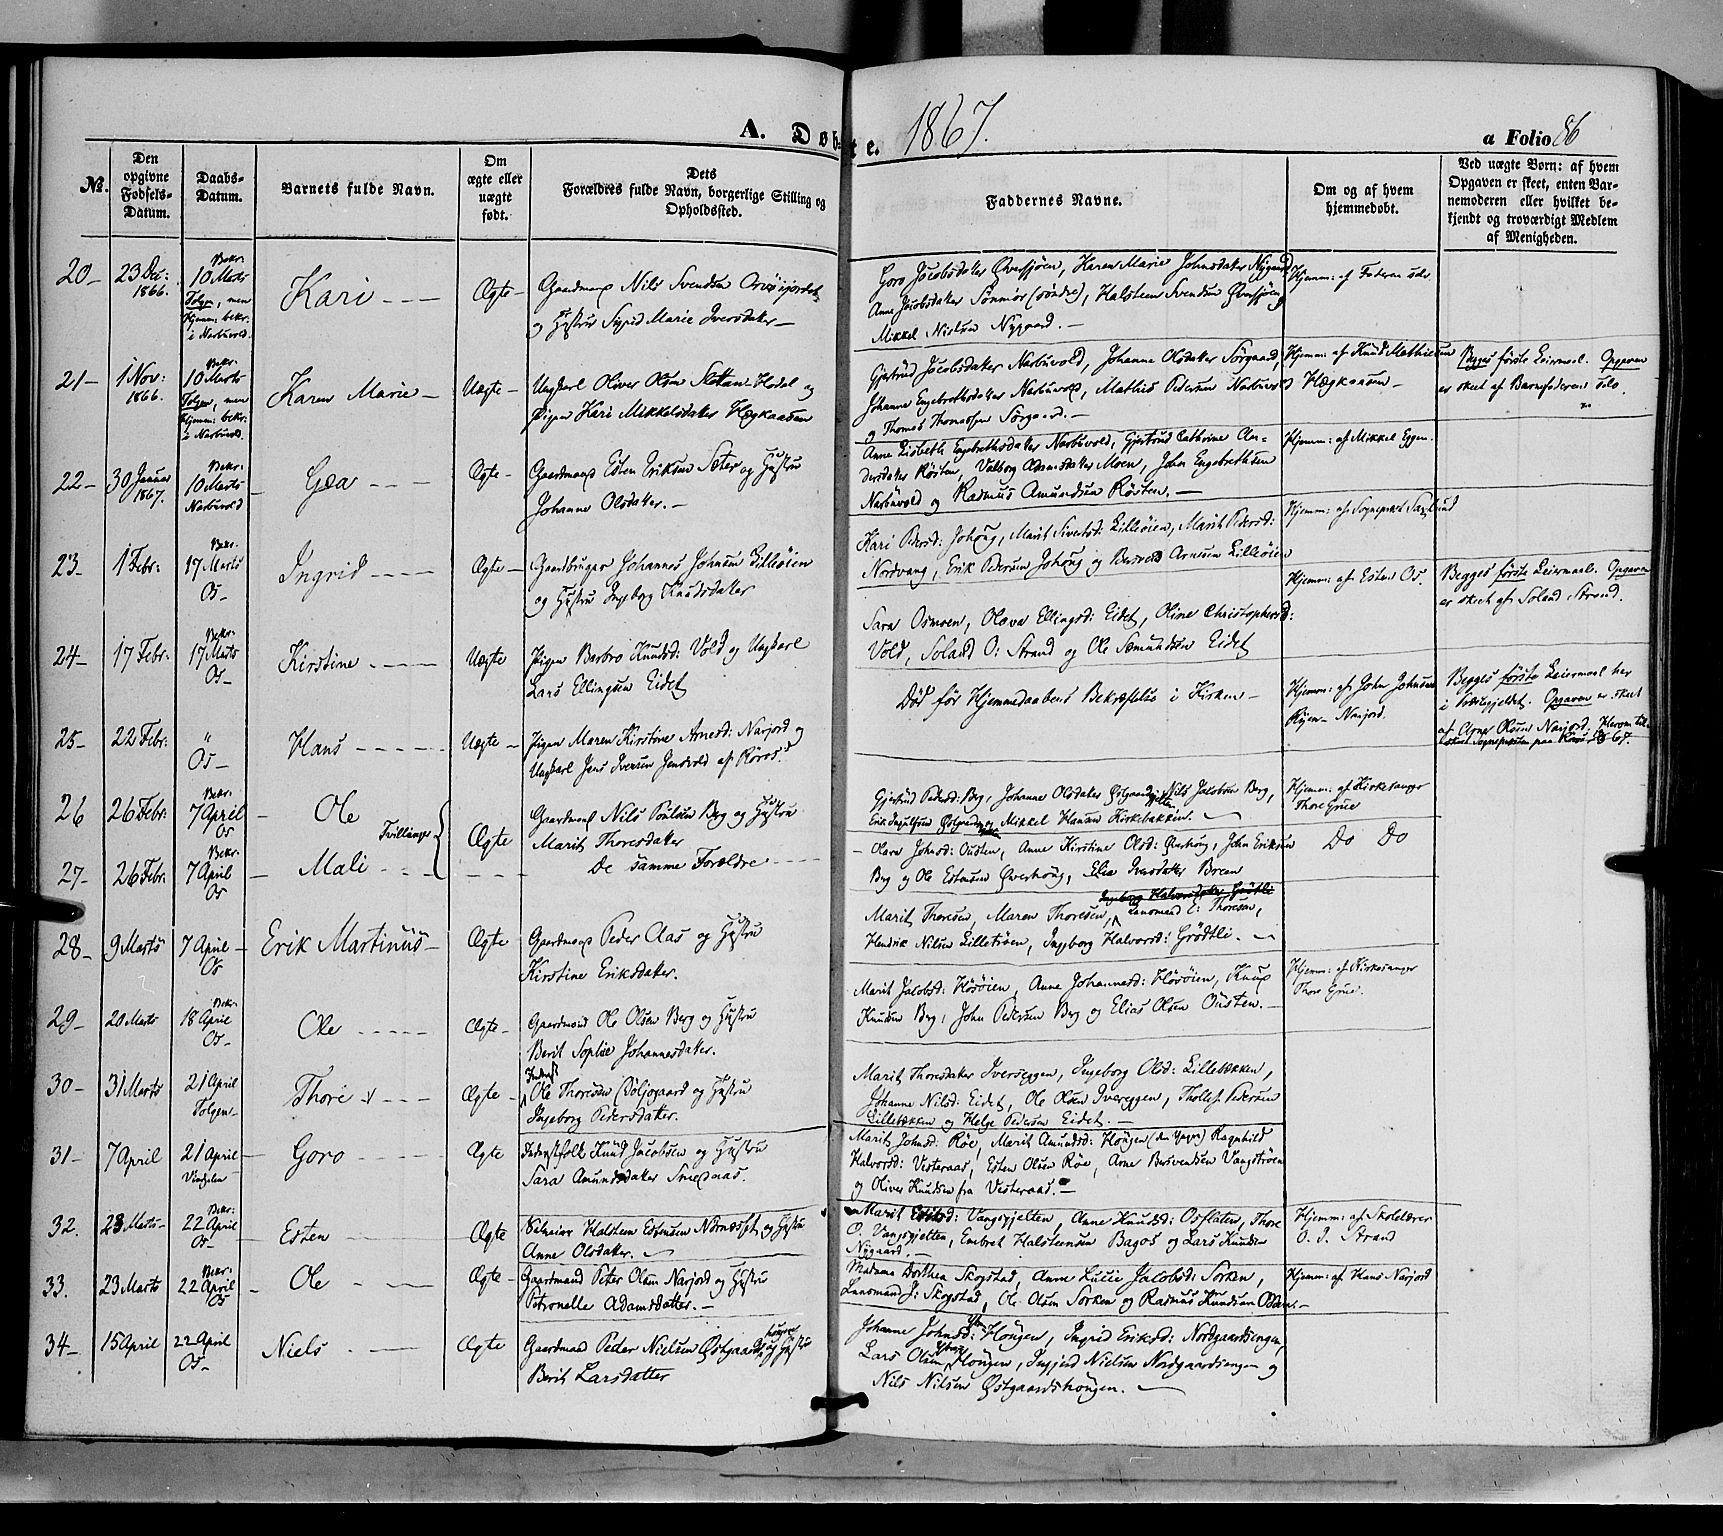 A. Døbte. 1867. a Folio 86
No.
Den opgivne Fødsels-Datum.
Daabs-Datum.
Barnets fulde Navn.
Om ægte eller uægte født.
Dets Forældres fulde Navn, borgerlige Stilling og Opholdssted.
Faddernes Navne.
Om og af hvem hjemmedøbt.
Ved uægte Børn: af hvem Opgaven er skeet, enten Barnemoderen eller hvilket bekjendt og troværdigt Medlem af Menigheden.
20 – 23 Dec: 1866. Bekr. 10 Marts Tolgen, men Hjemm: bekr: i Narbuvold. Kari – – – Ægte –
Gaardmand Nils Svendsen
og Hustru Sigrid Marie Iversdater –
Goro Jacobsdater Øversjøen, Karen Marie Johnsdater Nygaard
Anne Jacobsdater Sømmør (søndre), Halsteen Svendsen Øversjøen
Mikkel Nielsen Nygaard. –
Hjemm: af Faderen selv
21 – 1 Nov: 1866. Bekr. 10 Marts Tolgen, men Hjemm: bekr: i Narbuvold. Karen Marie – Uægte –
Ungkarl Oliver Olsen Hodal og
Pigen Kari Mikkelsdater Hægkaasen
Gjertrud Jacobsdater Narbuvold, Johanne Olsdater Sørgaard,
Johanne Engebrethsdater Narbuvold, Mathis Pedersen Narbuvold
og Thomas Thomassen Sørgaard. –
Hjemm: af Knud Mathiesen
Hægkaasen –
Begges første Leiermaal. Opgaven
er skeet af Barnefaderen selv.
22 – 30 Januar 1867. Bekr. 10 Marts Narbuvold – Gea – – – Ægte –
Gaardmand Esten Eriksen Sæter og Hustru
Johanne Olsdater. –
Anne Lisbeth Engebrethsdater Narbuvold, Gjertrud Cathrine An-
dersdater Røsten, Valborg Adamsdater Moen, John Engebrethsen
Narbuvold og Rasmus Amundsen Røsten. –
Hjemm: af Mikkel Eggen.
23 – 1 Febr: Bekr. 17 Marts Os – Ingrid – – – Ægte –
Gaardbruger Johannes Johnsen Lilleøien
og Hustru Ingeborg Knudsdater
Kari Pedersd: Johøug, Marit Sivertsd: Lilleøien, Marit Pedersd:
Nordvang, Erik Pedersen Johøug og Bersvend Arnesen Lilleøien
Hjemm: af Sognepræst
24 – 17 Febr: Bekr. 17 Marts Os – Kirstine – – – Uægte
Pigen Barbro Knudsd: Vold og Ungkarl
Lars Ellingsen Eidet
Sara Osmoen, Olava Ellingsd: Eidet, Oline Christophersd:
Vold, Soland O: Strand og Ole Semundsen Eidet
Hjemm: af Esten Os.
Begges første Leiermaal. Opgaven
er skeet af Soland Strand.
25 – 22 Febr: " Os – Hans – – – Uægte –
Pigen Maren Kirstine Arnesd: Narjord og
Ungkarl Jens Iversen Jensvold af Røros.
Død før Hjemmedaabens Bekræftelse i Kirken –
Hjemm: af John Johnsen
Røjen – Narjord.
Begges første Leiermaal her
i Præstegjeldet. Opgaven er skeet
af Arne Olsen Narjord. Herom til-
skrevet Sognepræsten paa Røros 67.
26 26 Febr: Bekr. 7 April Os – Ole Tvillinger Ægte
Gaardmand Nils Poulsen Berg og Hustru
Marit Thoresdater
Gjertrud Pedersd: Berg, Johanne Olsdater Østgaard, Nils Jacobsen Berg,
Erik Ingulfsen Østgaard og Mikkel Hansen Kirkebakken.
Hjemm: af Kirkesanger
Thore Grue
27 – 26 Febr: Bekr. 7 April Os – Mali – – –
De samme Forældre – – –
Olava Johnsd: Ousten, Anne Kirstine Olsd: Øverhøug, John Eriksen
Berg og Ole Estensen Øwerhøug, Elia Iversdater Breen
Do Do
28 – 9 Marts 7 April Os – Erik Martinus – Ægte
Gaardmand Peder Aas og Hustru
Kirstine Eriksdater.
Ingeborg Halvorsdater Grødtli
Marit Thoresen, Maren Thoresen, Lensmand E: Thoresen,
Hendrik Nilsen Lilletrøen, Ingeborg Halvorsd: Grødtli. –
29 – 20 Marts Bekr. 18 April Os – Ole – – – Ægte –
Gaardmand Ole Olsen Berg og Hustru
Berit Sophie Johannesdater.
Marit Jacobsd: Hosøien, Anne Johannesd: Hosøien, Knud
Knudsen Berg, John Pedersen Berg og Elias Olsen Ousten. –
Hjemm: af Kirkesanger
Thore Grue.
30 – 31 Marts 21 April Tolgen – Thore – – – Ægte –
Inderst Ole Thoresen Døljegaard og Hustru
Ingeborg Pedersdatter.
Marit Thoresdater Iverseggen, Ingeborg Olsd: Lillebækken,
Johanne Nilsd: Eidet, Ole Olsen Ivereggen, Thollef Pedersen
Lillebækken og Helge Pedersen Eidet. –
31 – 7 April 21 April Vingelen – Goro – – – Ægte
Inderstfolk Knud Jacobsen og Hustru
Sara Amundsdater Smednaas.
Marit Johnsd: Røe, Marit Amundsd: Høugen (den yngre) Ragnhild
Halvorsd: Vesteraas, Esten Olsen Røe, Arne Bersvendsen Vangstrøen
og Oliver Knudsen fra Vesteraas. –
32. 28 Marts – Bekr: 22 April Os – Esten – – Ægte
Halsteen Estensen og Hustru
Anne Olsdater. –
Marit Estensd: Vangsgjelten, Anne Knudsd: Osflaten, Thore
O. Vangsgjelten, Embret Halsteensen Bagos og Lars Knudsen
Nygaard. –
Hjemm: af Skolelærer
O. J. Strand
33. 23 Marts Bekr: 22 April Os – Ole – – Ægte –
Gaardmand Peter Olsen Narjord og Hustru
Petronelle Adamsdatter. –
Madame Dorthea Skogstad, Anne Lucie Jacobsd: Sorken,
Lensmand J: Skogstad, Ole Olsen Sorken og Rasmus Knudsen Odden. –
Hjemm: af Hans Narjord
34 – 15 April 22 April Os – Niels – – Ægte
Gaardmand Peder Nielsen Østgaardshougen og Hustru
Berit Larsdatter
Johanne Johnsd: Høugen, Ingrid Eriksd: Nordgaardsengen,
Lars Olsen Høugen, Ingjerd Nielsen Nordgaardsengen og
Nils Nilsen Østgaardshougen. –